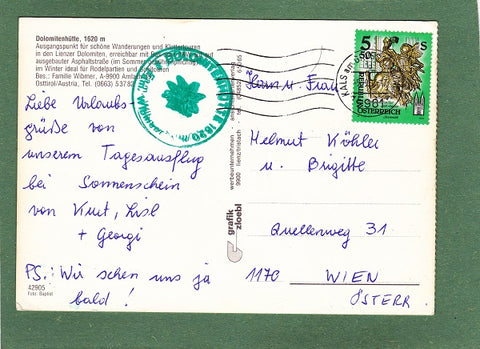 Dolomitenhütte, 1620 m
Ausgangspunkt für schöne Wanderungen und Klettertouren
in den Lienzer Dolomiten, erreichbar mit
ausgebauter Asphaltstraße (im Sommer
im Winter ideal für Rodelpartien und
Bes.: Familie Wibmer, A-9900 Amlach
Osttirol/Austria, Tel. (0663) 5
DOLOMITENHÜTTE 1620 m
5
50
S
REPUBLIK
ÖSTERREICH
KALS
Liebe Urlaubs-
grüße von
unserem Tagesausflug
bei Sonnenschein
von Kurt, Lisl
+ Georgi
PS.: Wir sehen uns ja
bald!
42905
Foto: Baptist
werbeunternehmen
9900 lienz/tristach
grafik
zloebl
Herrn u. Frau
Helmut Köhler
u. Brigitte
Quellenweg 31
1170 WIEN
ÖSTERR